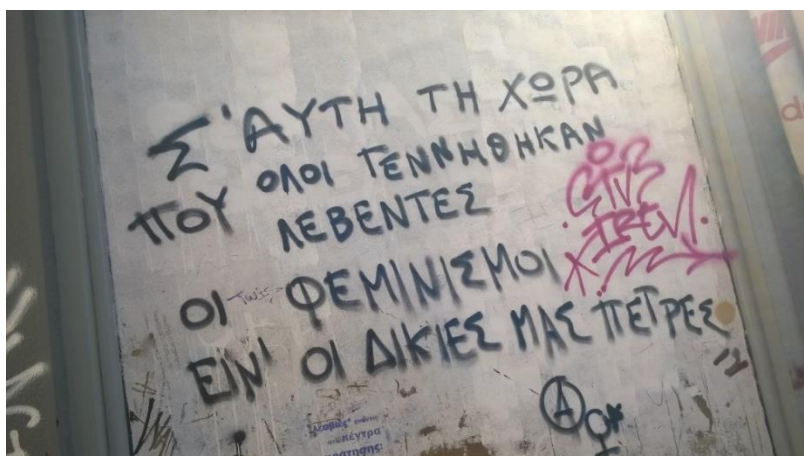 Σ'ΑΥΤΗ ΤΗ ΧΩΡΑ
ΠΟΥ ΟΛΟΙ ΓΕΝΝΗΘΗΚΑΝ
ΛΕΒΕΝΤΕΣ
ΟΙ ΦΕΜΙΝΙΣΜΟΙ
ΕΙΝ' ΟΙ ΔΙΚΙΕΣ ΜΑΣ ΠΕΤΡΕΣ
A
κέντρα